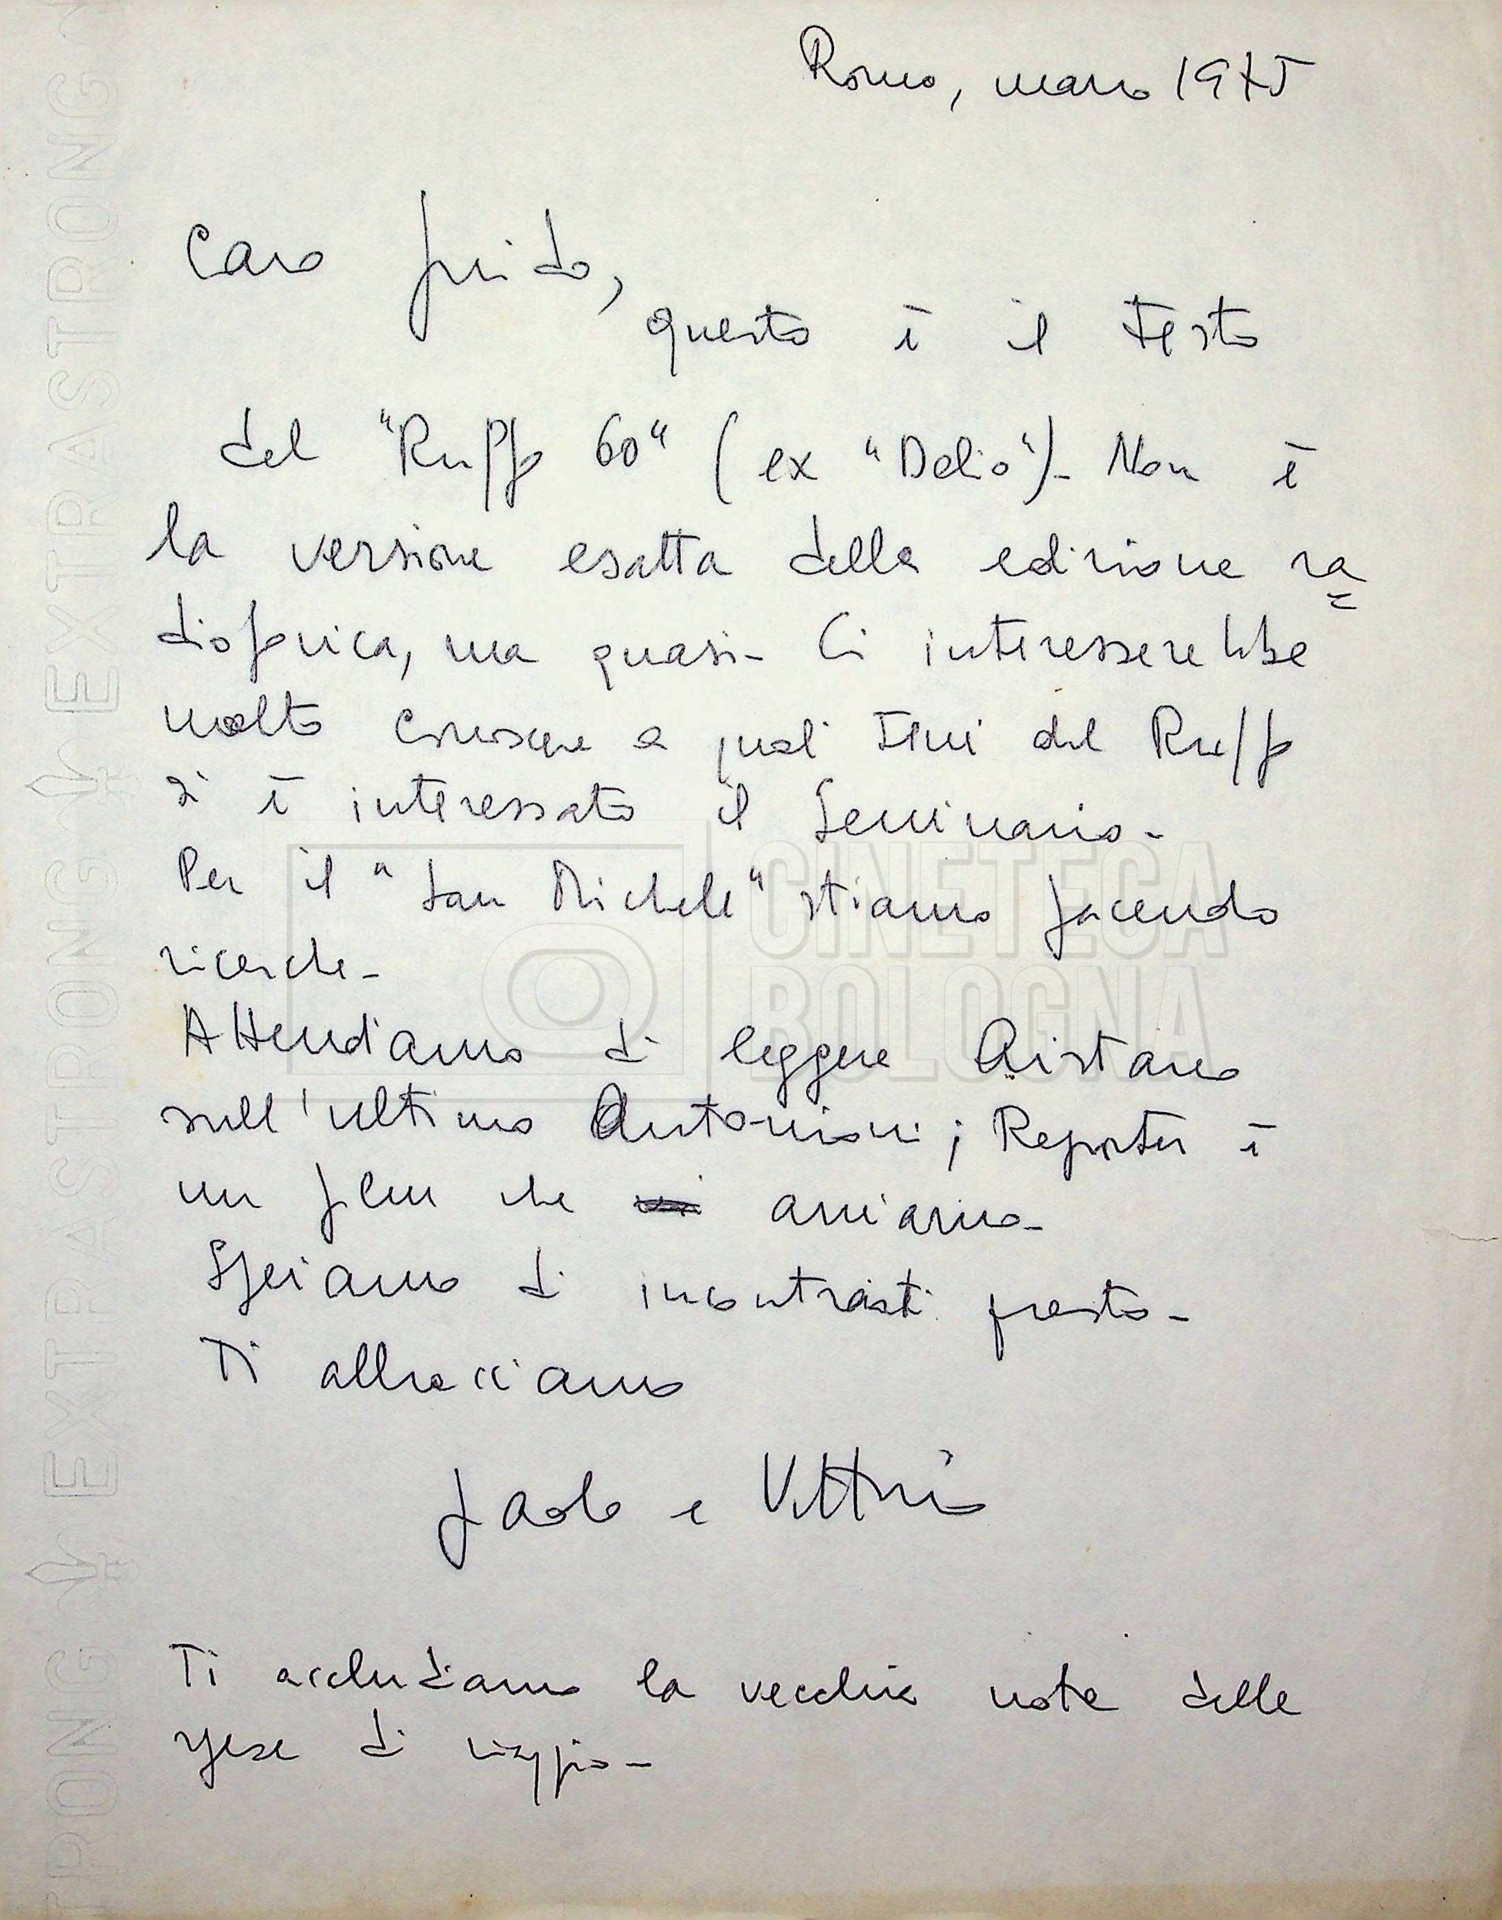 Roma, marzo 1975
Caro Guido,
questo è il testo
del "Ruffo 60" (ex "Delio")- Non è
la versione esatta della edizione ra=
diofonica, ma quasi- Ci interesserebbe
molto conoscere a quali temi del Ruffo
si è interessato il Seminario-
Per il "San Michele" stiamo facendo
ricerche-
Attendiamo di leggere Aristarco
sull'ultimo Antonioni; Reporter è
un film che amiamo-
Speriamo di incontrarti presto-
Ti abbracciamo
Paolo e Vittorio
Ti accludiamo la vecchia nota delle
spese di viaggio-
CINETECA
BOLOGNA
EXTRASTRONG EXTRASTRONG EXTRASTRONG